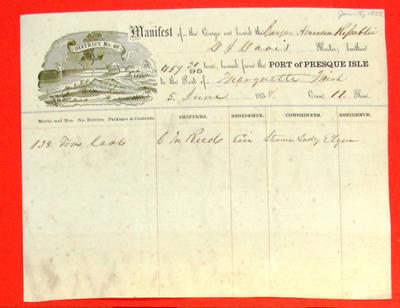 June 5, 1858
DISTRICT No. 26
Manifest of the Cargo on board the Barque American Republic
D J Davis Master, burthen
459 20/95 tons, bound from the PORT OF PRESQUE ISLE
to the Port of Marquette Mich
5 June 1858. Crew 11 Men
Marks and Nos. No. Entries. Packages & Contents. SHIPPERS. RESIDENCE. CONSIGNEES. RESIDENCE.
138 Tons Coal C M Reed Erie Steamer Lady Elgin